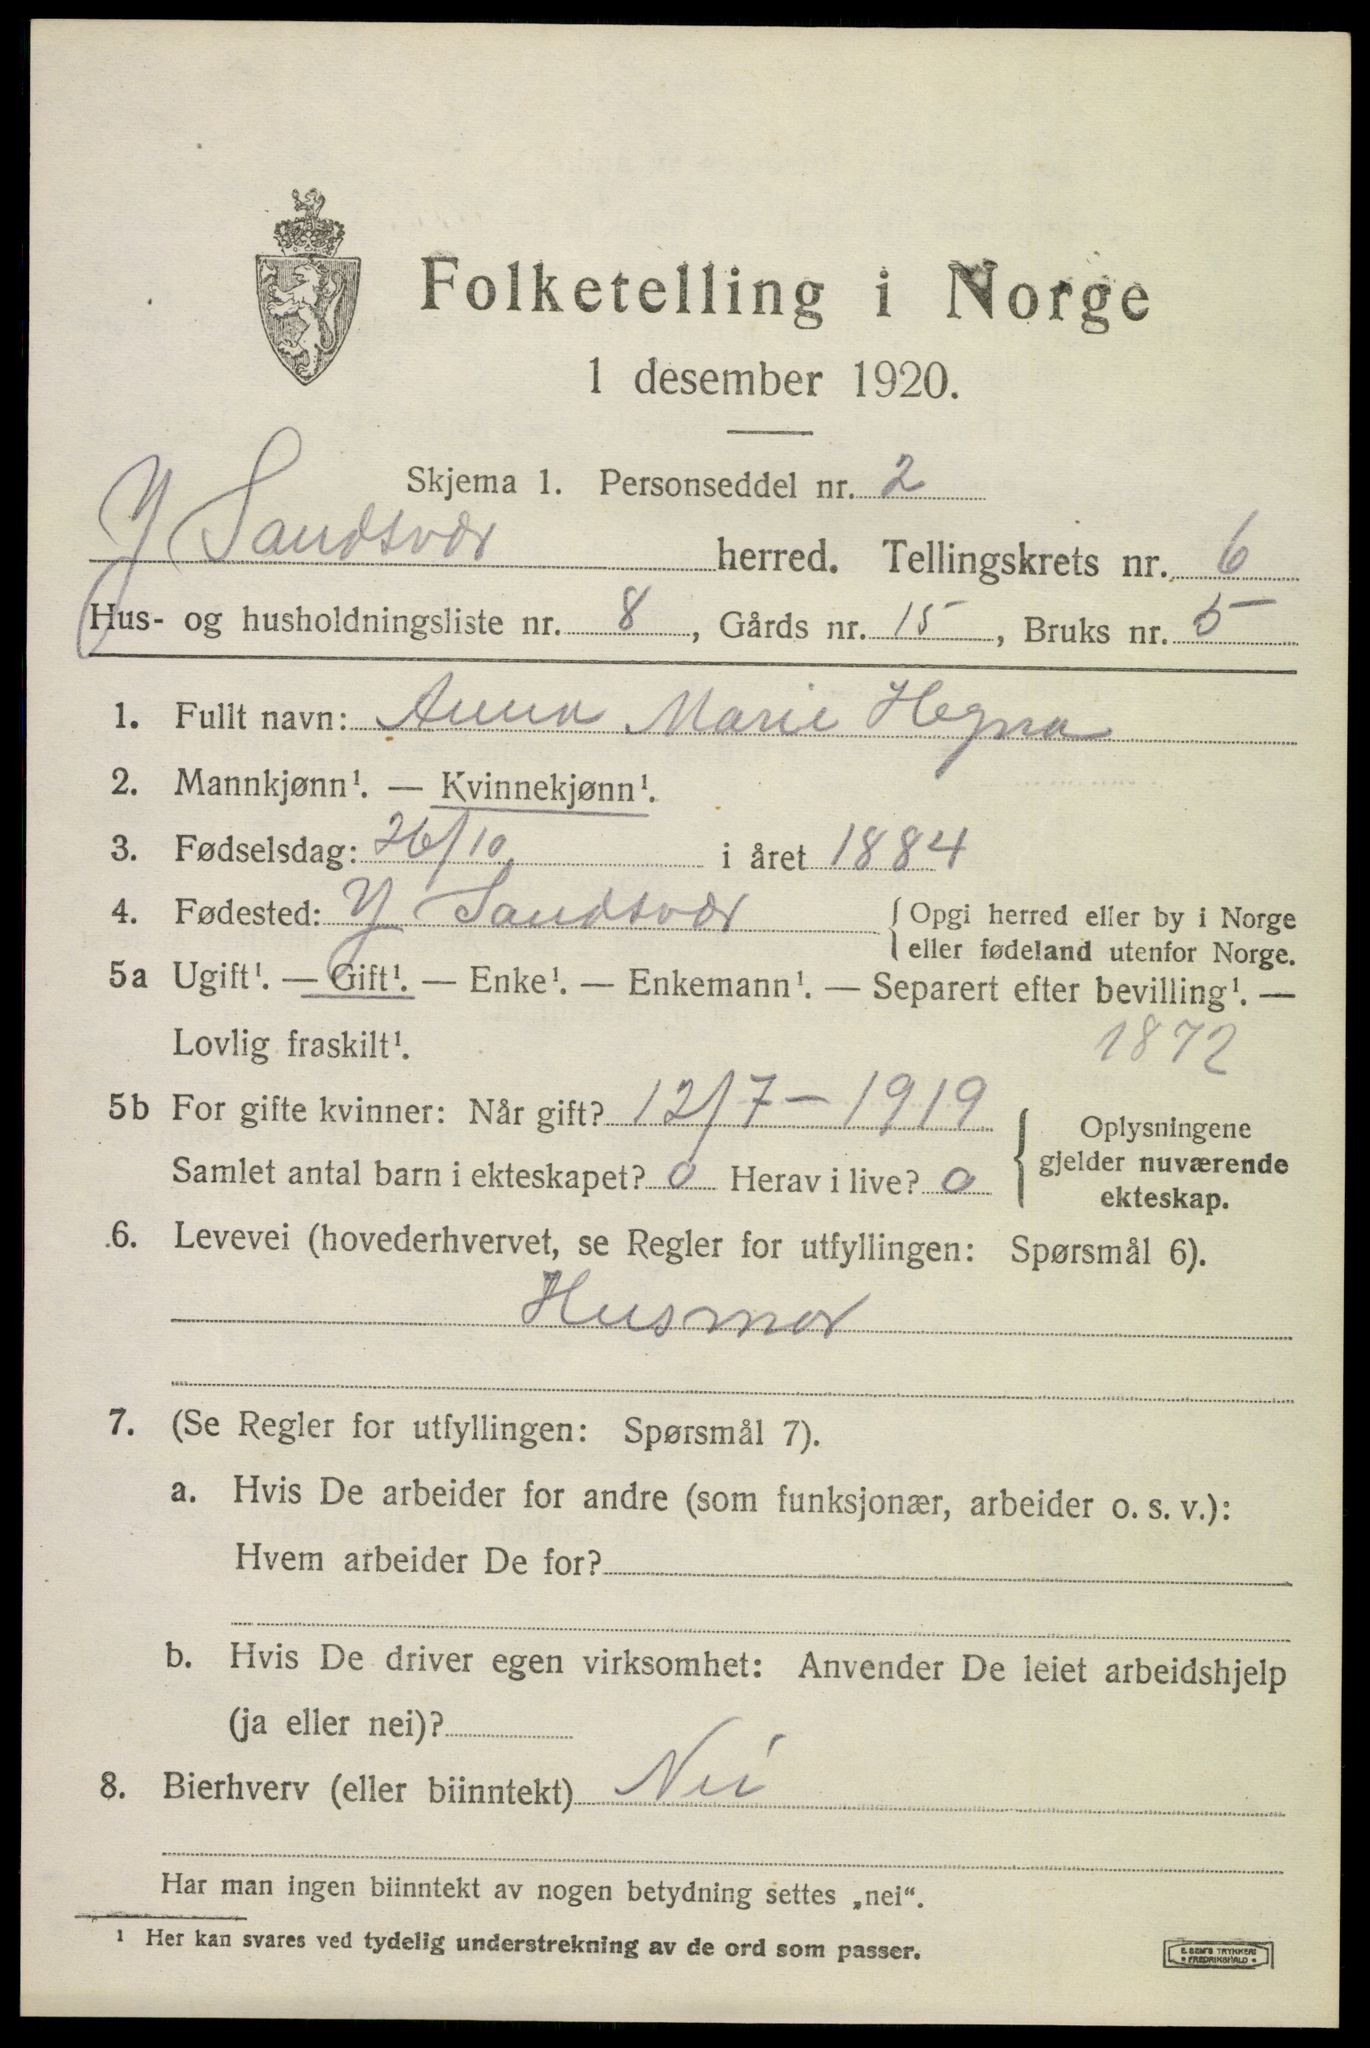 Folketelling i Norge
1 desember 1920.
Skjema 1. Personseddel nr. 2
Y Sandsvær herred. Tellingskrets nr. 6
Hus- og husholdningsliste nr. 8, Gårds nr. 15, Bruks nr. 5
1. Fullt navn: Anna Marie Hegna
2. Mannkjønn¹. — Kvinnekjønn¹.
3. Fødselsdag: 26/10 i året 1884
4. Fødested: Y Sandsvær { Opgi herred eller by i Norge
eller fødeland utenfor Norge.
5a Ugift¹. — Gift¹. — Enke¹. — Enkemann¹. — Separert efter bevilling¹. —
Lovlig fraskilt¹. 1872
5b For gifte kvinner: Når gift? 12/7 - 1919
Samlet antal barn i ekteskapet? 0 Herav i live? 0
{ Oplysningene
gjelder nuværende
ekteskap.
6. Levevei (hovederhvervet, se Regler for utfyllingen: Spørsmål 6).
Husmor
7. (Se Regler for utfyllingen: Spørsmål 7).
a. Hvis De arbeider for andre (som funksjonær, arbeider o. s. v.):
Hvem arbeider De for?
b. Hvis De driver egen virksomhet: Anvender De leiet arbeidshjelp
(ja eller nei)?
8. Bierhverv (eller biinntekt) Nei
Har man ingen biinntekt av nogen betydning settes „nei“.
¹ Her kan svares ved tydelig understrekning av de ord som passer.
E. SEM'S TRYKKERI
• FREDRIKSHALD •